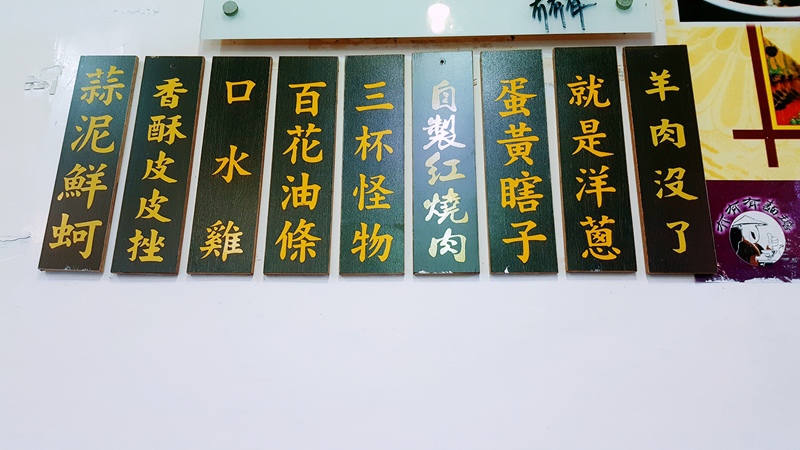 羊肉沒了
就是洋蔥
蛋黃瞎子
自製紅燒肉
三杯怪物
百花油條
口水雞
香酥皮皮挫
蒜泥鮮蚵